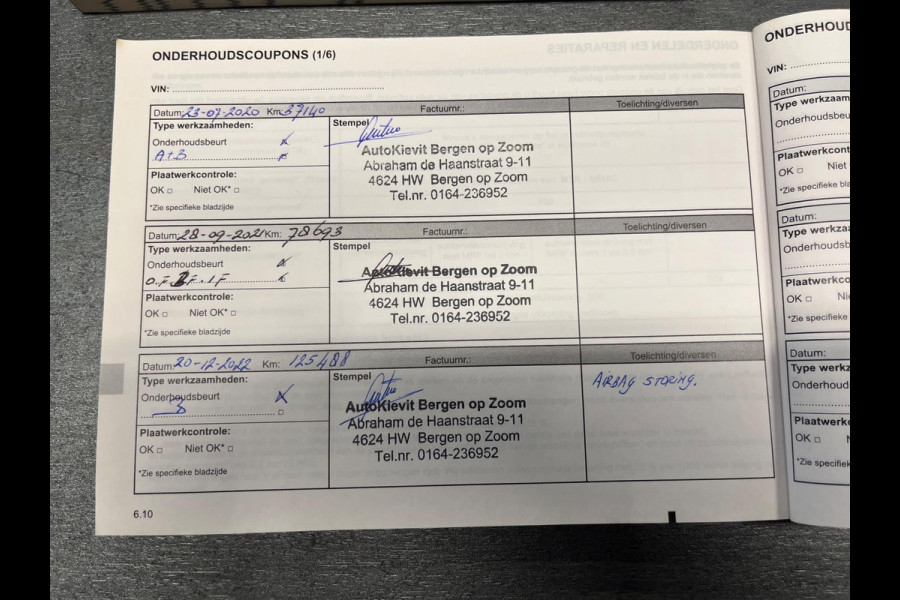 ONDERHOUDSCOUPONS (1/6)
VIN:
Datum: 23-07-2020 Km: 37140 Factuurnr.: Toelichting/diversen
Type werkzaamheden:
Stempel
Onderhoudsbeurt
A+B
AutoKievit Bergen op Zoom
Abraham de Haanstraat 9-11
4624 HW Bergen op Zoom
Tel.nr. 0164-236952
Plaatwerkcontrole:
OK □ Niet OK* □
*Zie specifieke bladzijde
Datum: 28-09-2021 Km: 78693 Factuurnr.: Toelichting/diversen
Type werkzaamheden:
Stempel
Onderhoudsbeurt
AutoKievit Bergen op Zoom
Abraham de Haanstraat 9-11
4624 HW Bergen op Zoom
Tel.nr. 0164-236952
Plaatwerkcontrole:
OK □ Niet OK* □
*Zie specifieke bladzijde
Datum: 20-12-2022 Km: 125488 Factuurnr.: Toelichting/diversen
Type werkzaamheden:
Stempel
Onderhoudsbeurt
AIRBAG STORING.
AutoKievit Bergen op Zoom
Abraham de Haanstraat 9-11
4624 HW Bergen op Zoom
Tel.nr. 0164-236952
Plaatwerkcontrole:
OK □ Niet OK* □
*Zie specifieke bladzijde
6.10
ONDERHOUD
VIN:
Datum:
Type werkzaam
Onderhoudsbeu
Plaatwerkcont
OK □ Niet
*Zie specifieke bla
Datum:
Type werkza
Onderhoudsb
Plaatwerkco
OK □ Ni
*Zie specifieke
Datum:
Type werkz
Onderhoud
Plaatwerk
OK □ N
*Zie specifiek